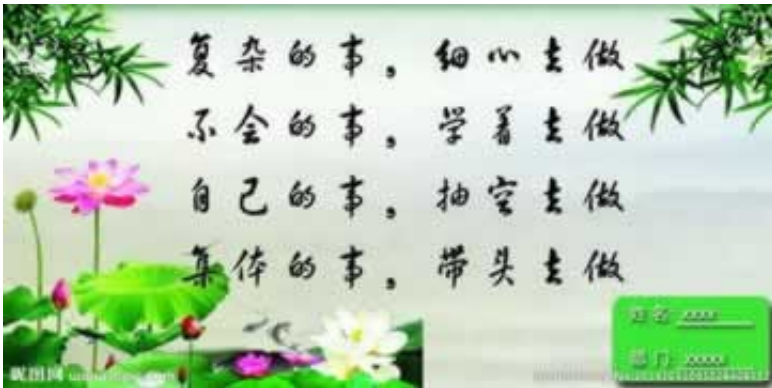 复杂的事，细心去做
不会的事，学着去做
自己的事，抽空去做
集体的事，带头去做
姓名 xxxx
部门 xxxx
昵图网